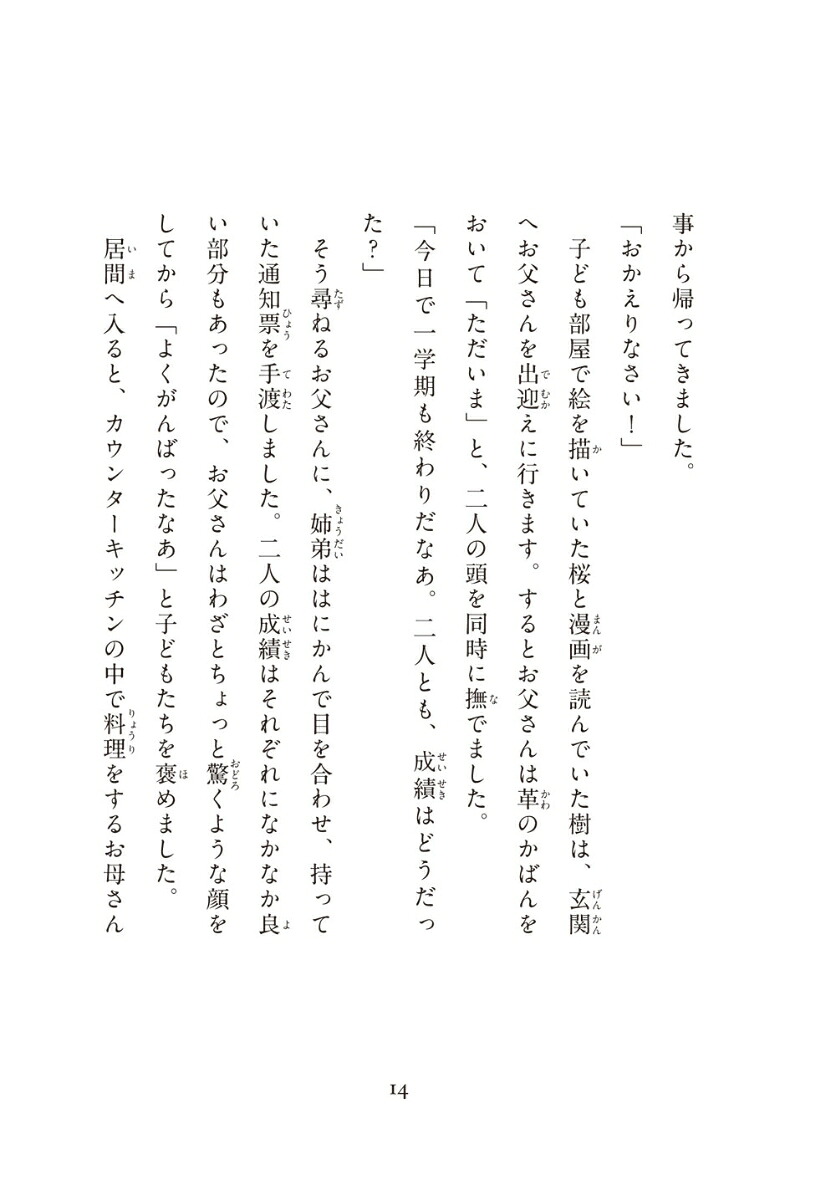 事から帰ってきました。
「おかえりなさい！」
　子ども部屋で絵を描いていた桜と漫画を読んでいた樹は、玄関
へお父さんを出迎えに行きます。するとお父さんは革のかばんを
おいて「ただいま」と、二人の頭を同時に撫でました。
「今日で一学期も終わりだなあ。二人とも、成績はどうだっ
た？」
　そう尋ねるお父さんに、姉弟ははにかんで目を合わせ、持って
いた通知票を手渡しました。二人の成績はそれぞれになかなか良
い部分もあったので、お父さんはわざとちょっと驚くような顔を
してから「よくがんばったなあ」と子どもたちを褒めました。
　居間へ入ると、カウンターキッチンの中で料理をするお母さん
14